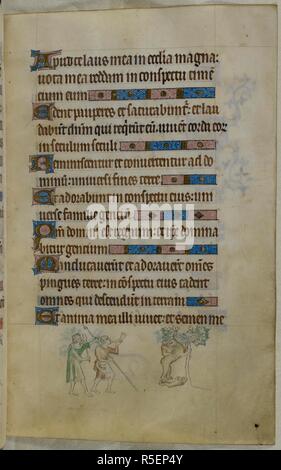 Apud te laus mea in ecclia magna:
uota mea reddam in conspectu timen
cium eum
Edent pauperes et saturabunt: et lau
dabunt dnm qui requirunt eu: uiuent corda eor
in seculum seculi
Reminiscentur et conuertentur ad do
minu: uniuersi fines terre
Et adorabunt in conspectu eius: uni
uerse familie gencium
Qm dom est regnum: et ipse domina
bitur gencium
Manducauerut et adorauerut omes
pingues terre: in conspectu eius cadent
omnes qui descendunt in terram
Et anima mea illi uiuet: et semen me
alamy
Image ID: R5EP4Y
www.alamy.com